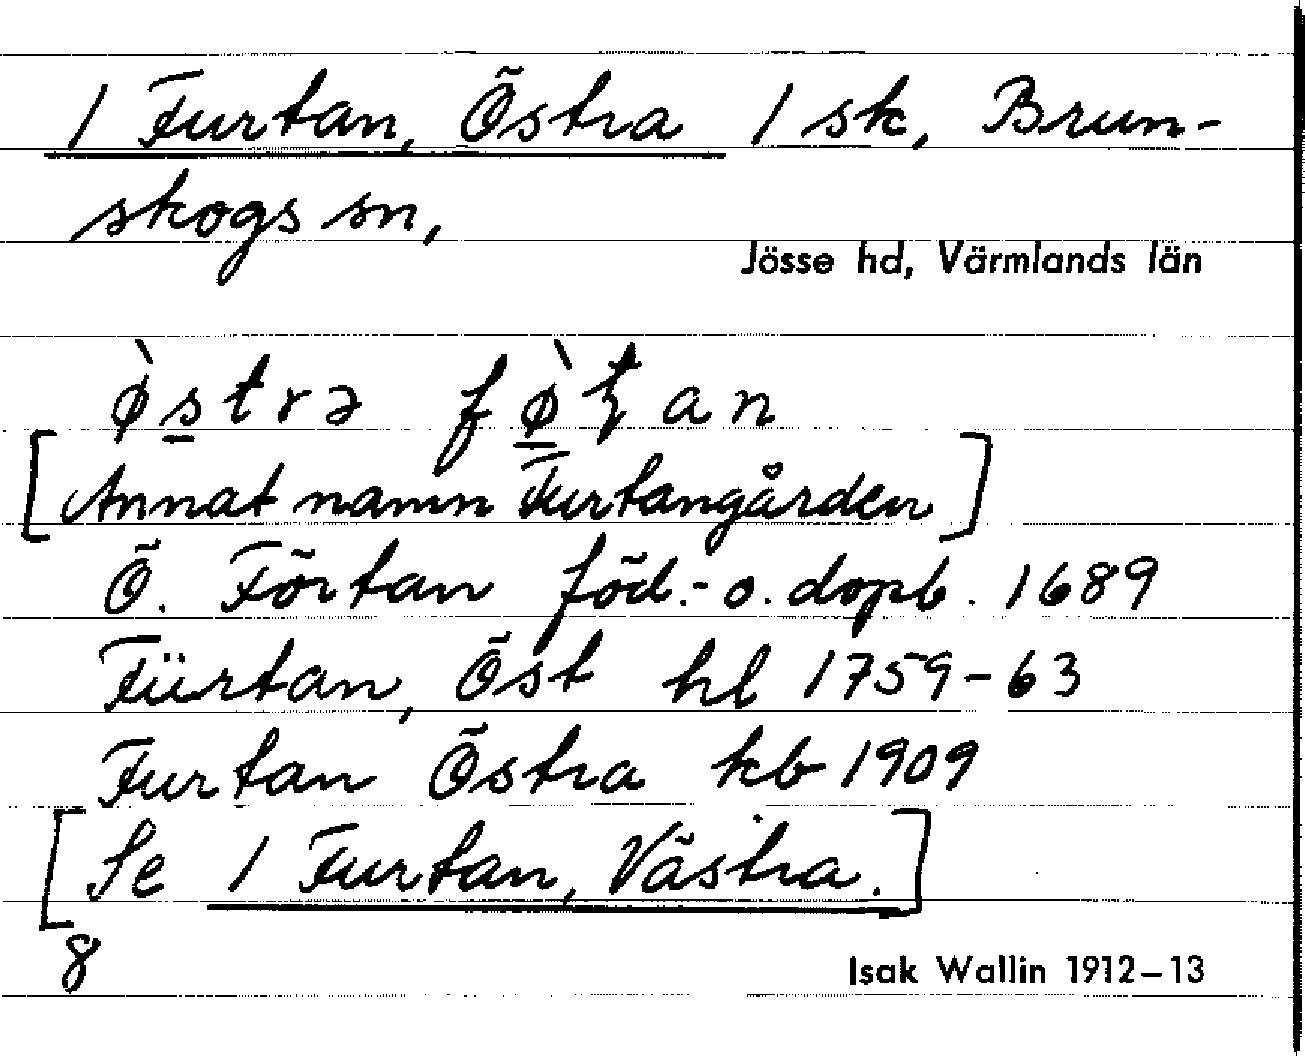 1 Furtan, Östra 1 sk, Brun-
skogs sn,
Jösse hd, Värmlands län
ø̀stra fø̀ʈan
[Annat namn Furtangården]
Ö. Förtan föd.- o. dopb. 1689
Fürtan, Öst hl 1759-63
Furtan Östra kb 1909
[Se 1 Furtan, Västra.]
8
Isak Wallin 1912-13